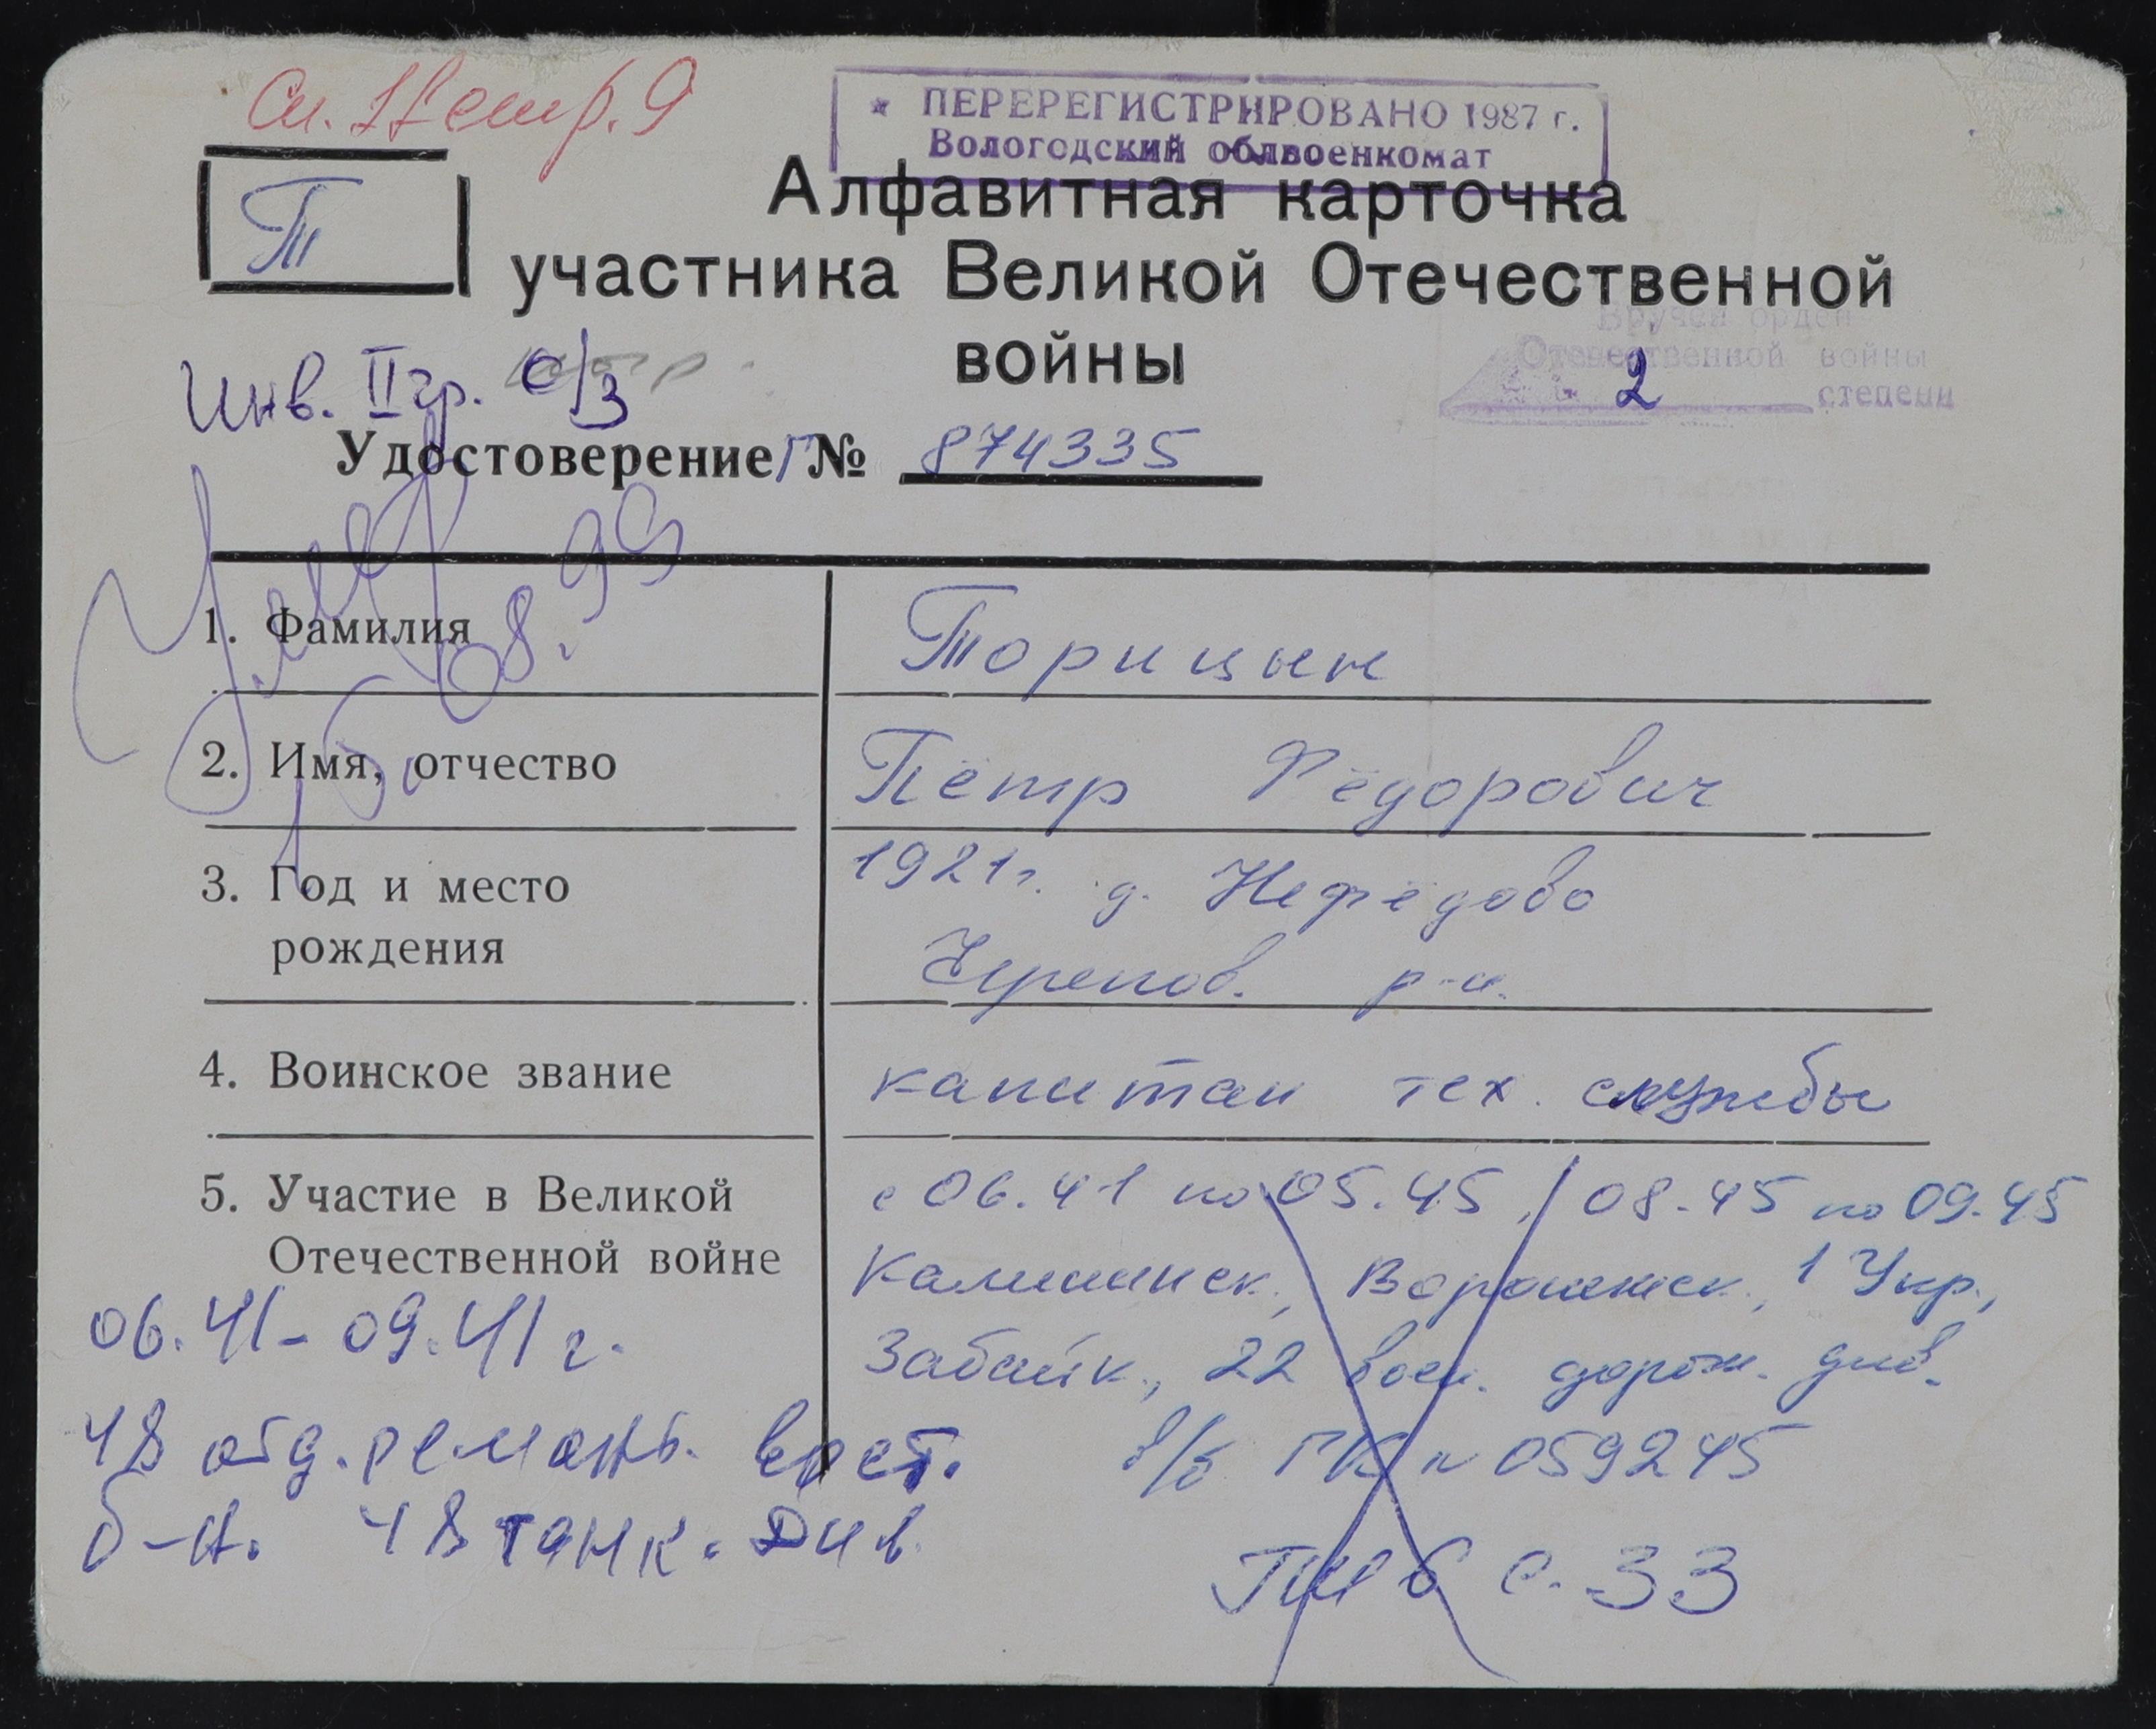 Сп. 17 стр. 9
* ПЕРЕРЕГИСТРИРОВАНО 1987 г.
Вологодский облвоенкомат
Т
Алфавитная карточка
участника Великой Отечественной
войны
Вручен орден
Отечественной войны
2 степени
Инв. II гр. с/з
Удостоверение Г № 874335
Умер
15.08.99
1. Фамилия
Торицын
2. Имя, отчество
Пётр Фёдорович
3. Год и место
рождения
1921 г. д. Нефёдово
Черепов. р-н.
4. Воинское звание
капитан тех. службы
5. Участие в Великой
Отечественной войне
с 06.41 по 05.45, / 08.45 по 09.45
Калининск., Воронежск., 1 Укр.,
Забайк., 22 воен. дорож. див.
в/б ГК № 059245
ПШ 6 с. 33
06.41 - 09.41 г.
48 отд. ремонт. вост.
б-н. 48 танк. див.